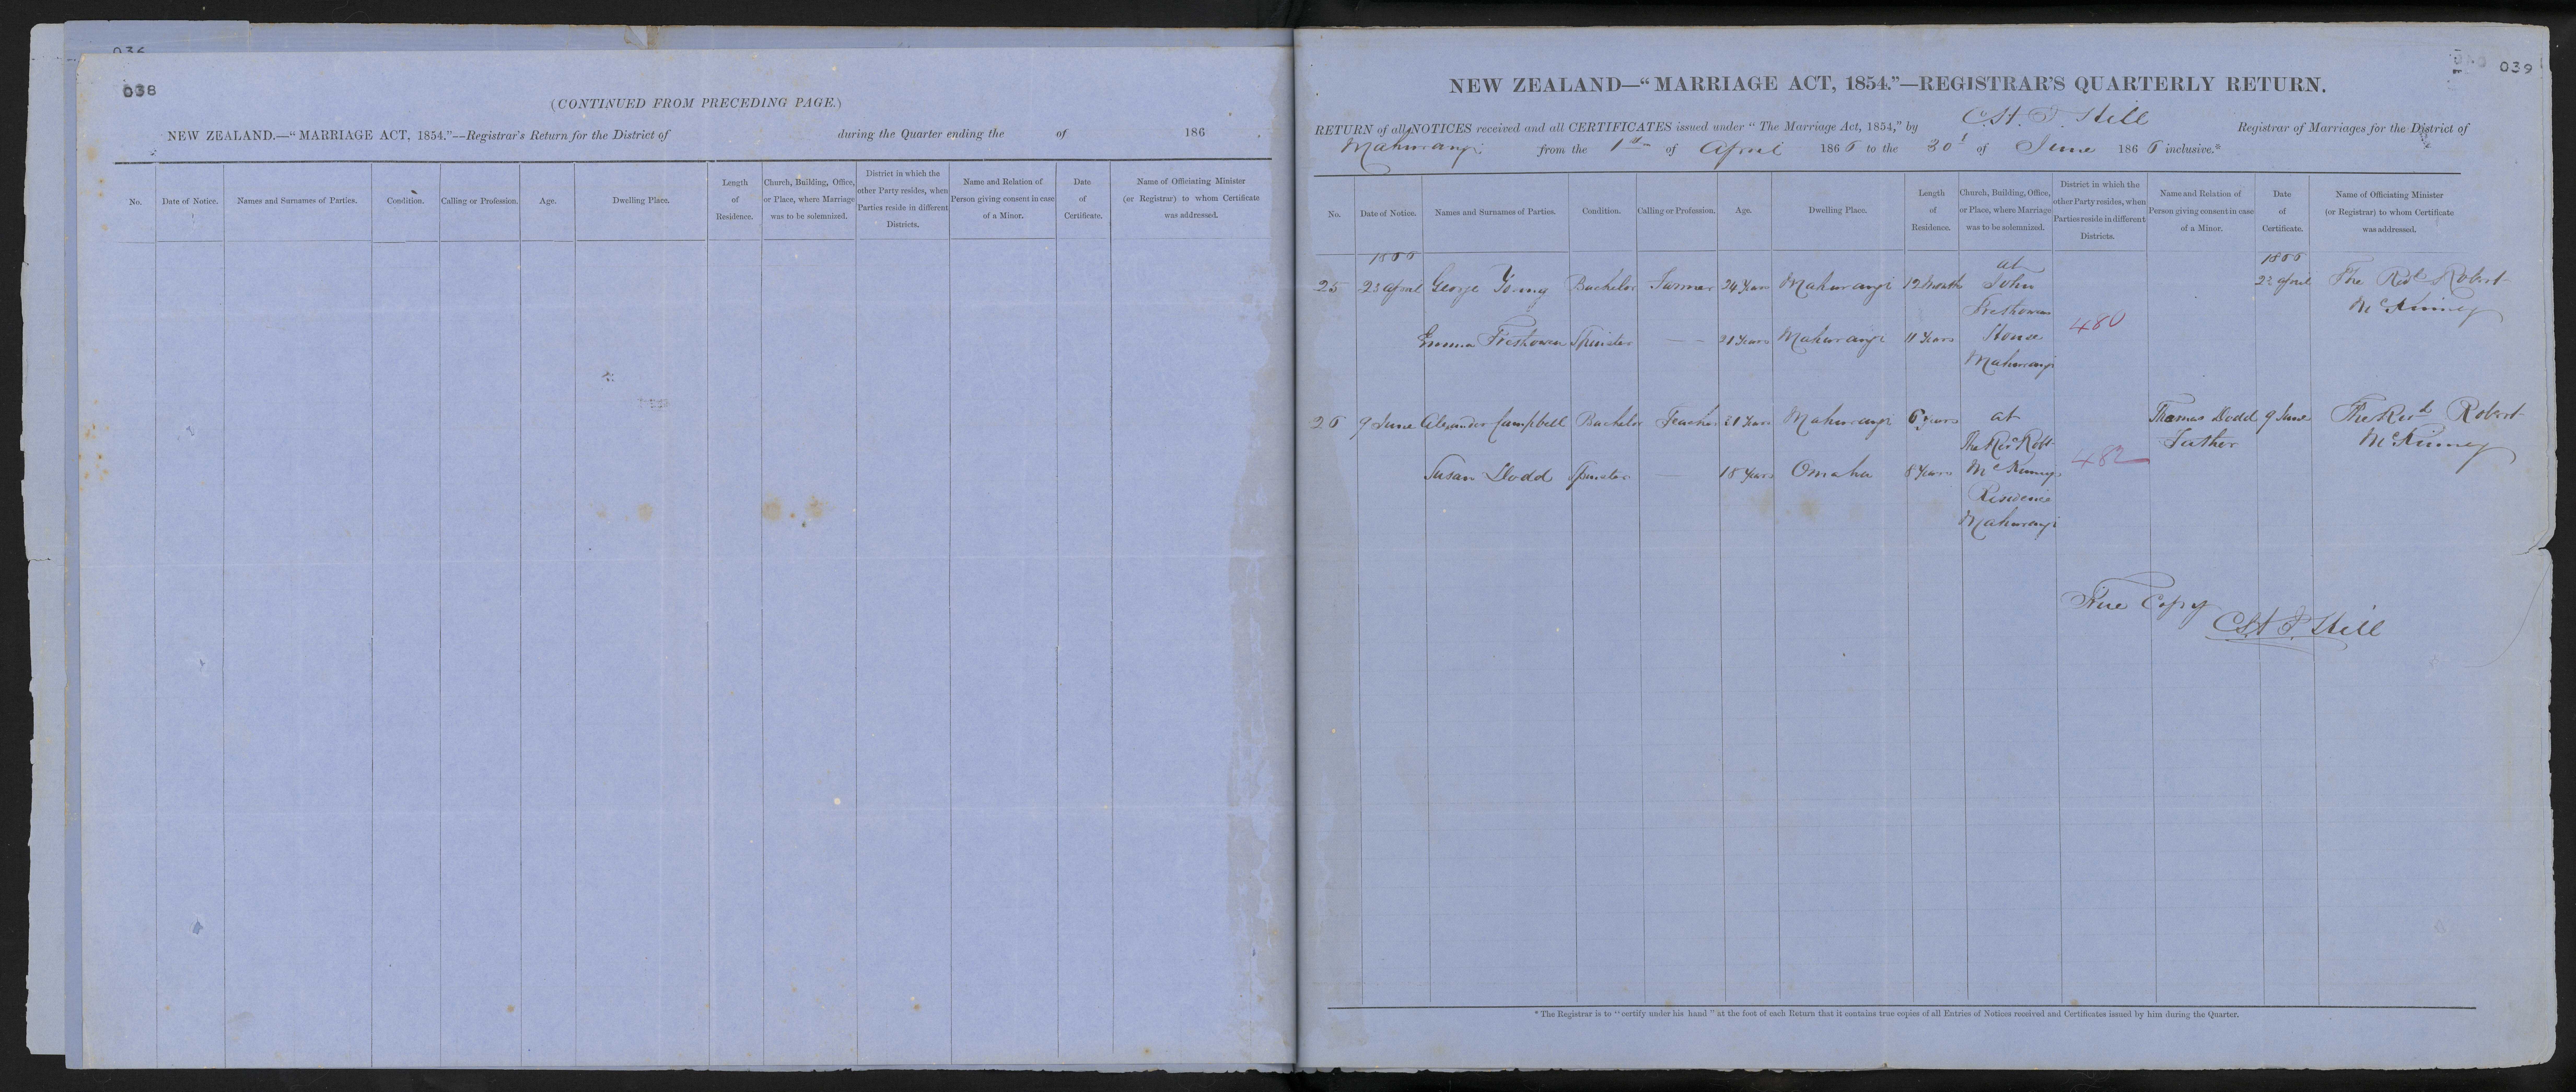 036
038
(CONTINUED FROM PRECEDING PAGE.)
NEW ZEALAND.—"MARRIAGE ACT, 1854."—Registrar's Return for the District of during the Quarter ending the of 186 .
No. Date of Notice. Names and Surnames of Parties. Condition. Calling or Profession. Age. Dwelling Place. Length of Residence. Church, Building, Office, or Place, where Marriage was to be solemnized. District in which the other Party resides, when Parties reside in different Districts. Name and Relation of Person giving consent in case of a Minor. Date of Certificate. Name of Officiating Minister (or Registrar) to whom Certificate was addressed.
039
NEW ZEALAND—"MARRIAGE ACT, 1854."—REGISTRAR'S QUARTERLY RETURN.
RETURN of all NOTICES received and all CERTIFICATES issued under "The Marriage Act, 1854," by Registrar of Marriages for the District of
Mahurangi from the 1st of April 1866 to the 30 of June 1866 inclusive.*
No. Date of Notice. Names and Surnames of Parties. Condition. Calling or Profession. Age. Dwelling Place. Length of Residence. Church, Building, Office, or Place, where Marriage was to be solemnized. District in which the other Party resides, when Parties reside in different Districts. Name and Relation of Person giving consent in case of a Minor. Date of Certificate. Name of Officiating Minister (or Registrar) to whom Certificate was addressed.
1866 at 1866
25 23 April George Young Bachelor Farmer 24 Years Mahurangi 12 Months John 23 April The Revd Robert
McKinney
480
Emma Spinster — — 21 Years Mahurangi 11 Years House
Mahurangi
26 9 June Alexander Campbell Bachelor Teacher 21 Years Mahurangi 6 years at Thomas Dodd 9 June The Revd Robert
The Revd Robt Father McKinney
482
Susan Dodd Spinster — 18 Years Omaha 8 Years McKinneys
Residence
Mahurangi
True Copy
* The Registrar is to "certify under his hand" at the foot of each Return that it contains true copies of all Entries of Notices received and Certificates issued by him during the Quarter.